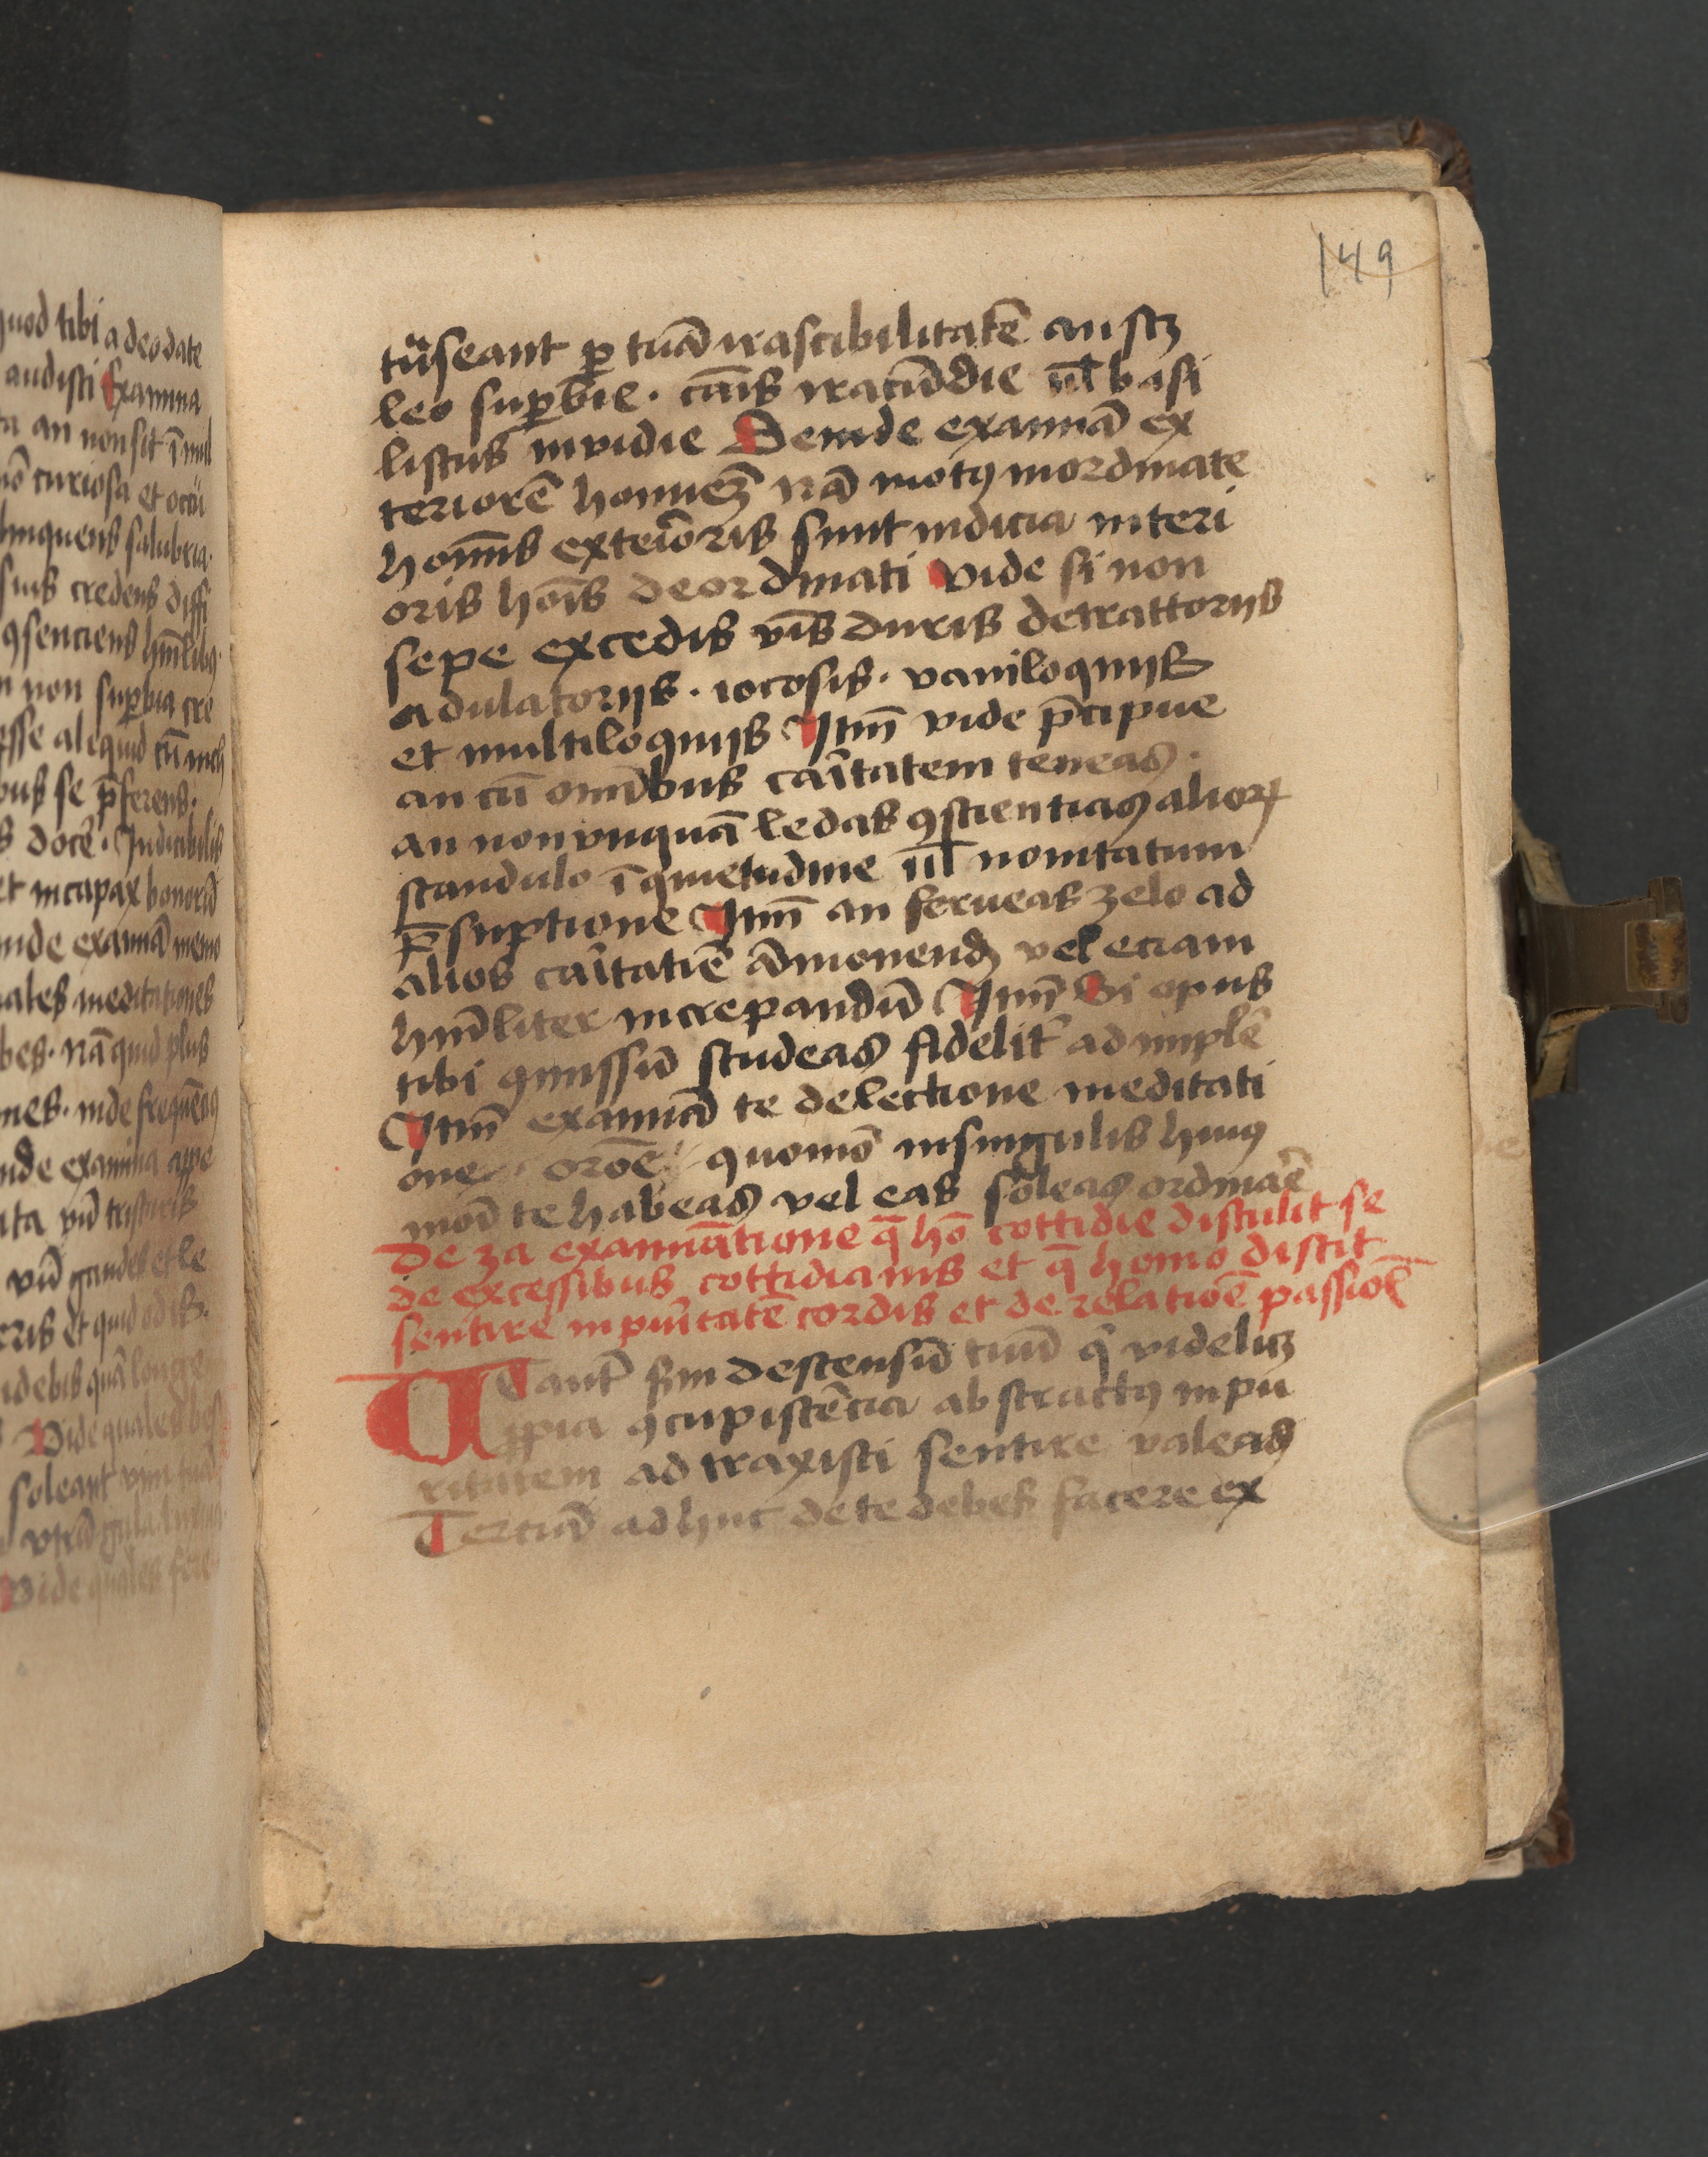 quod tibi a deo date
audisti Examina
ta an non sit ī mul
curiosa et ocu
linquens salubria.
suis credens diffi
ꝯsenciens hūilibꝰ
non suꝑbia cre
esse aliquid cū
bus se p̄ferens.
docē. Indicibilis
et incapax honorū
inde examīa memo
meditationes
bes. nā quid plus
nes. inde frequētas
inde examina appe
ata vn̄ tristaris
vn̄ gaudes et le
eris et quid odis.
idebis quā longe
Vide quales bes
soleant
gula
Vide quales fere
149
trāseant ꝑ tuā irascibilitatē an scꝫ
leo suꝑbie. canis iracūdie ul̄ basi
liscus inuidie Deinde examīa ex
teriorē hominēȝ nā motꝰ inordinate
homīs exteriōris sunt indicia interi
oris hoīs deordinati Vide si non
sepe excedis v̄bis duris detrattoriis
adulatoriis. iocosis. vaniloquiis
et multiloquiis Itm̄ vide p̄cipue
an cū omībus caritatem teneas.
an non vnquā ledas ꝯscientias alioꝝ
scandulo īquietudine ul̄ nouitatum
p̄suptione Itm̄ an ferueas zelo ad
alios caritatiē ādmonendȝ vel eciam
hūiliter increpandū Itm̄ Si opus
tibi ꝯmissū studeas fidelit̄ ad implē
Itm̄ examīa te de lectione meditati
one. orōe. quomō in singulis huiꝰ
modi te habeas vel eas soleas ordinare
De 3a examīatione q̄ hō cottidie discutit se
de excessibus cottidianis et q̄ homo discit
sentire inpuritatē cordis et de relatioē passiol̄
Ut aut̄ s̄m descensū tuū qͥ videlicȝ
ꝓpia ꝯcupiscēcia abstractꝰ inpu
ritatem ad traxisti sentire valeas
Terciā ad huc de te debes facere ex